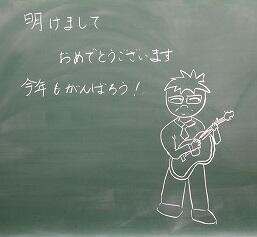 明けまして
おめでとうございます
今年もがんばろう！